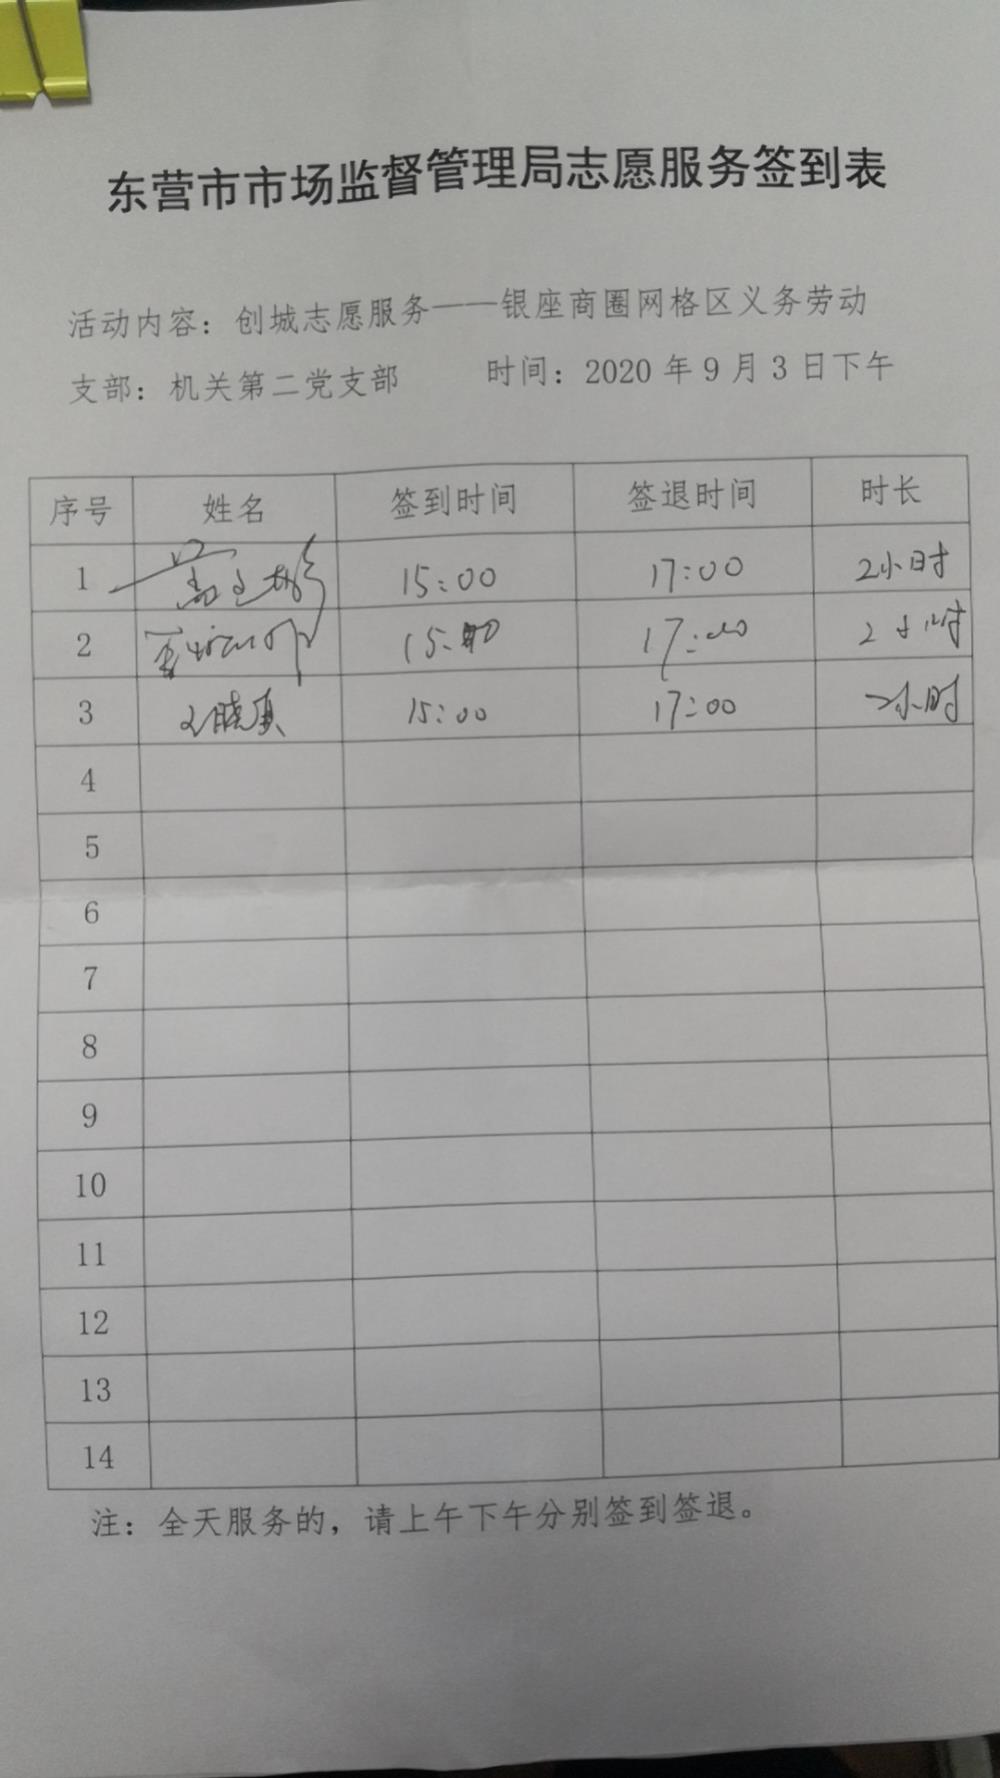 东营市市场监督管理局志愿服务签到表
活动内容：创城志愿服务——银座商圈网格区义务劳动
支部：机关第二党支部 时间：2020年9月3日下午
序号 姓名 签到时间 签退时间 时长
1 15:00 17:00 2小时
2 17:00 2小时
3 15:00 17:00 2小时
4
5
6
7
8
9
10
11
12
13
14
注：全天服务的，请上午下午分别签到签退。